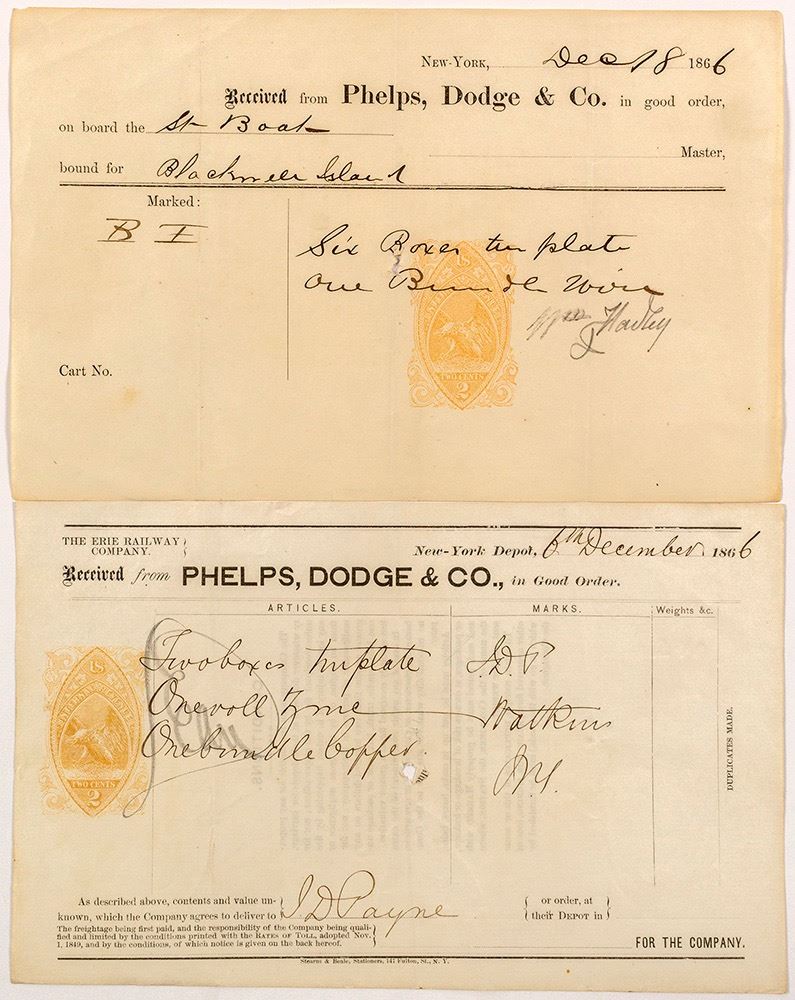 NEW-YORK, Dec 18 1866
Received from Phelps, Dodge & Co. in good order,
on board the St Boat
Master,
bound for Blackwell Island
Marked:
B I
Six Boxes tin plate
One Bundle Wire
Wm Hadley
Cart No.
U.S.
INTERNAL REVENUE
TWO CENTS
2
THE ERIE RAILWAY COMPANY.
New-York Depot, 6th December 1866
Received from PHELPS, DODGE & CO., in Good Order.
ARTICLES. MARKS. Weights &c.
Two boxes tin plate J.D.P.
One roll Zinc Watkins
One bundle Copper. N.Y.
U.S.
INTERNAL REVENUE
TWO CENTS
2
DUPLICATES MADE.
As described above, contents and value un-
known, which the Company agrees to deliver to J D Payne or order, at their DEPOT in
The freightage being first paid, and the responsibility of the Company being quali-
fied and limited by the conditions printed with the RATES OF TOLL, adopted Nov.
1, 1849, and by the conditions, of which notice is given on the back hereof.
FOR THE COMPANY.
Stearns & Beale, Stationers, 147 Fulton, St., N. Y.